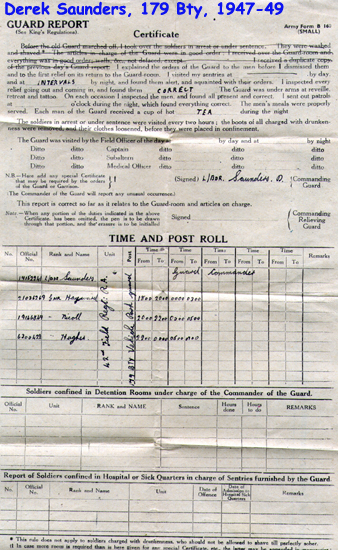 Derek Saunders, 179 Bty, 1947-49
GUARD REPORT
(See King's Regulations).
Army Form B 160
(SMALL)
Certificate
Before the old Guard marched off, I took over the soldiers in arrest or under sentence. They were washed
and shaved. The articles in charge of the Guard were in good order. I received over the Guard-room and
everything was in good order
I received a duplicate copy
of the previous day's Guard report. I explained the orders of the Guard to the men before I dismissed them
and to the first relief on its return to the Guard-room. I visited my sentries at by day,
and at INTERVALS by night, and found them alert, and acquainted with their orders. I inspected every
relief going out and coming in, and found them CORRECT The Guard was under arms at reveille,
retreat and tattoo. On each occasion I inspected the men, and found all present and correct. I sent out patrols
at o'clock during the night, which found everything correct. The men's meals were properly
served. Each man of the Guard received a cup of hot TEA during the night
The soldiers in arrest or under sentence were visited every two hours; the boots of all charged with drunken-
ness were removed, and their clothes loosened, before they were placed in confinement.
The Guard was visited by the Field Officer of the day at by day and at by night
Ditto ditto Captain ditto ditto ditto
Ditto ditto Subaltern ditto ditto ditto
Ditto ditto Medical Officer ditto ditto ditto
N.B.—Here add any special Certificate
that may be required by the orders
of the Guard or Garrison.
(Signed) L/BDR. Saunders. D.
Commanding
Guard
(The Commander of the Guard will report any unusual occurrence.)
This report is correct so far as it relates to the Guard-room and articles on charge.
Note.—When any portion of the duties indicated in the above
Certificate has been omitted, the pen is to be drawn
through that portion, and the erasure is to be initialled
Signed
Commanding
Relieving
Guard
TIME AND POST ROLL
No. Official No. Rank and Name Unit Post Time Time Time Time Remarks
From To From To From To From To
L/BDR Saunders Guard Commander
Gnr Hayward
Hughes
62nd Field Regt. R.A.
179 BTY Vehicle Park guard
Soldiers confined in Detention Rooms under charge of the Commander of the Guard.
Official No. Unit RANK and NAME Sentence Hours done Hours to do REMARKS
Report of Soldiers confined in Hospital or Sick Quarters in charge of Sentries furnished by the Guard.
No. Official No. Rank and Name Unit Date of Offence Date of Admission to Hospital Sick Quarters Remarks
* This rule does not apply to soldiers charged with drunkenness, who should not be allowed to shave till perfectly sober.